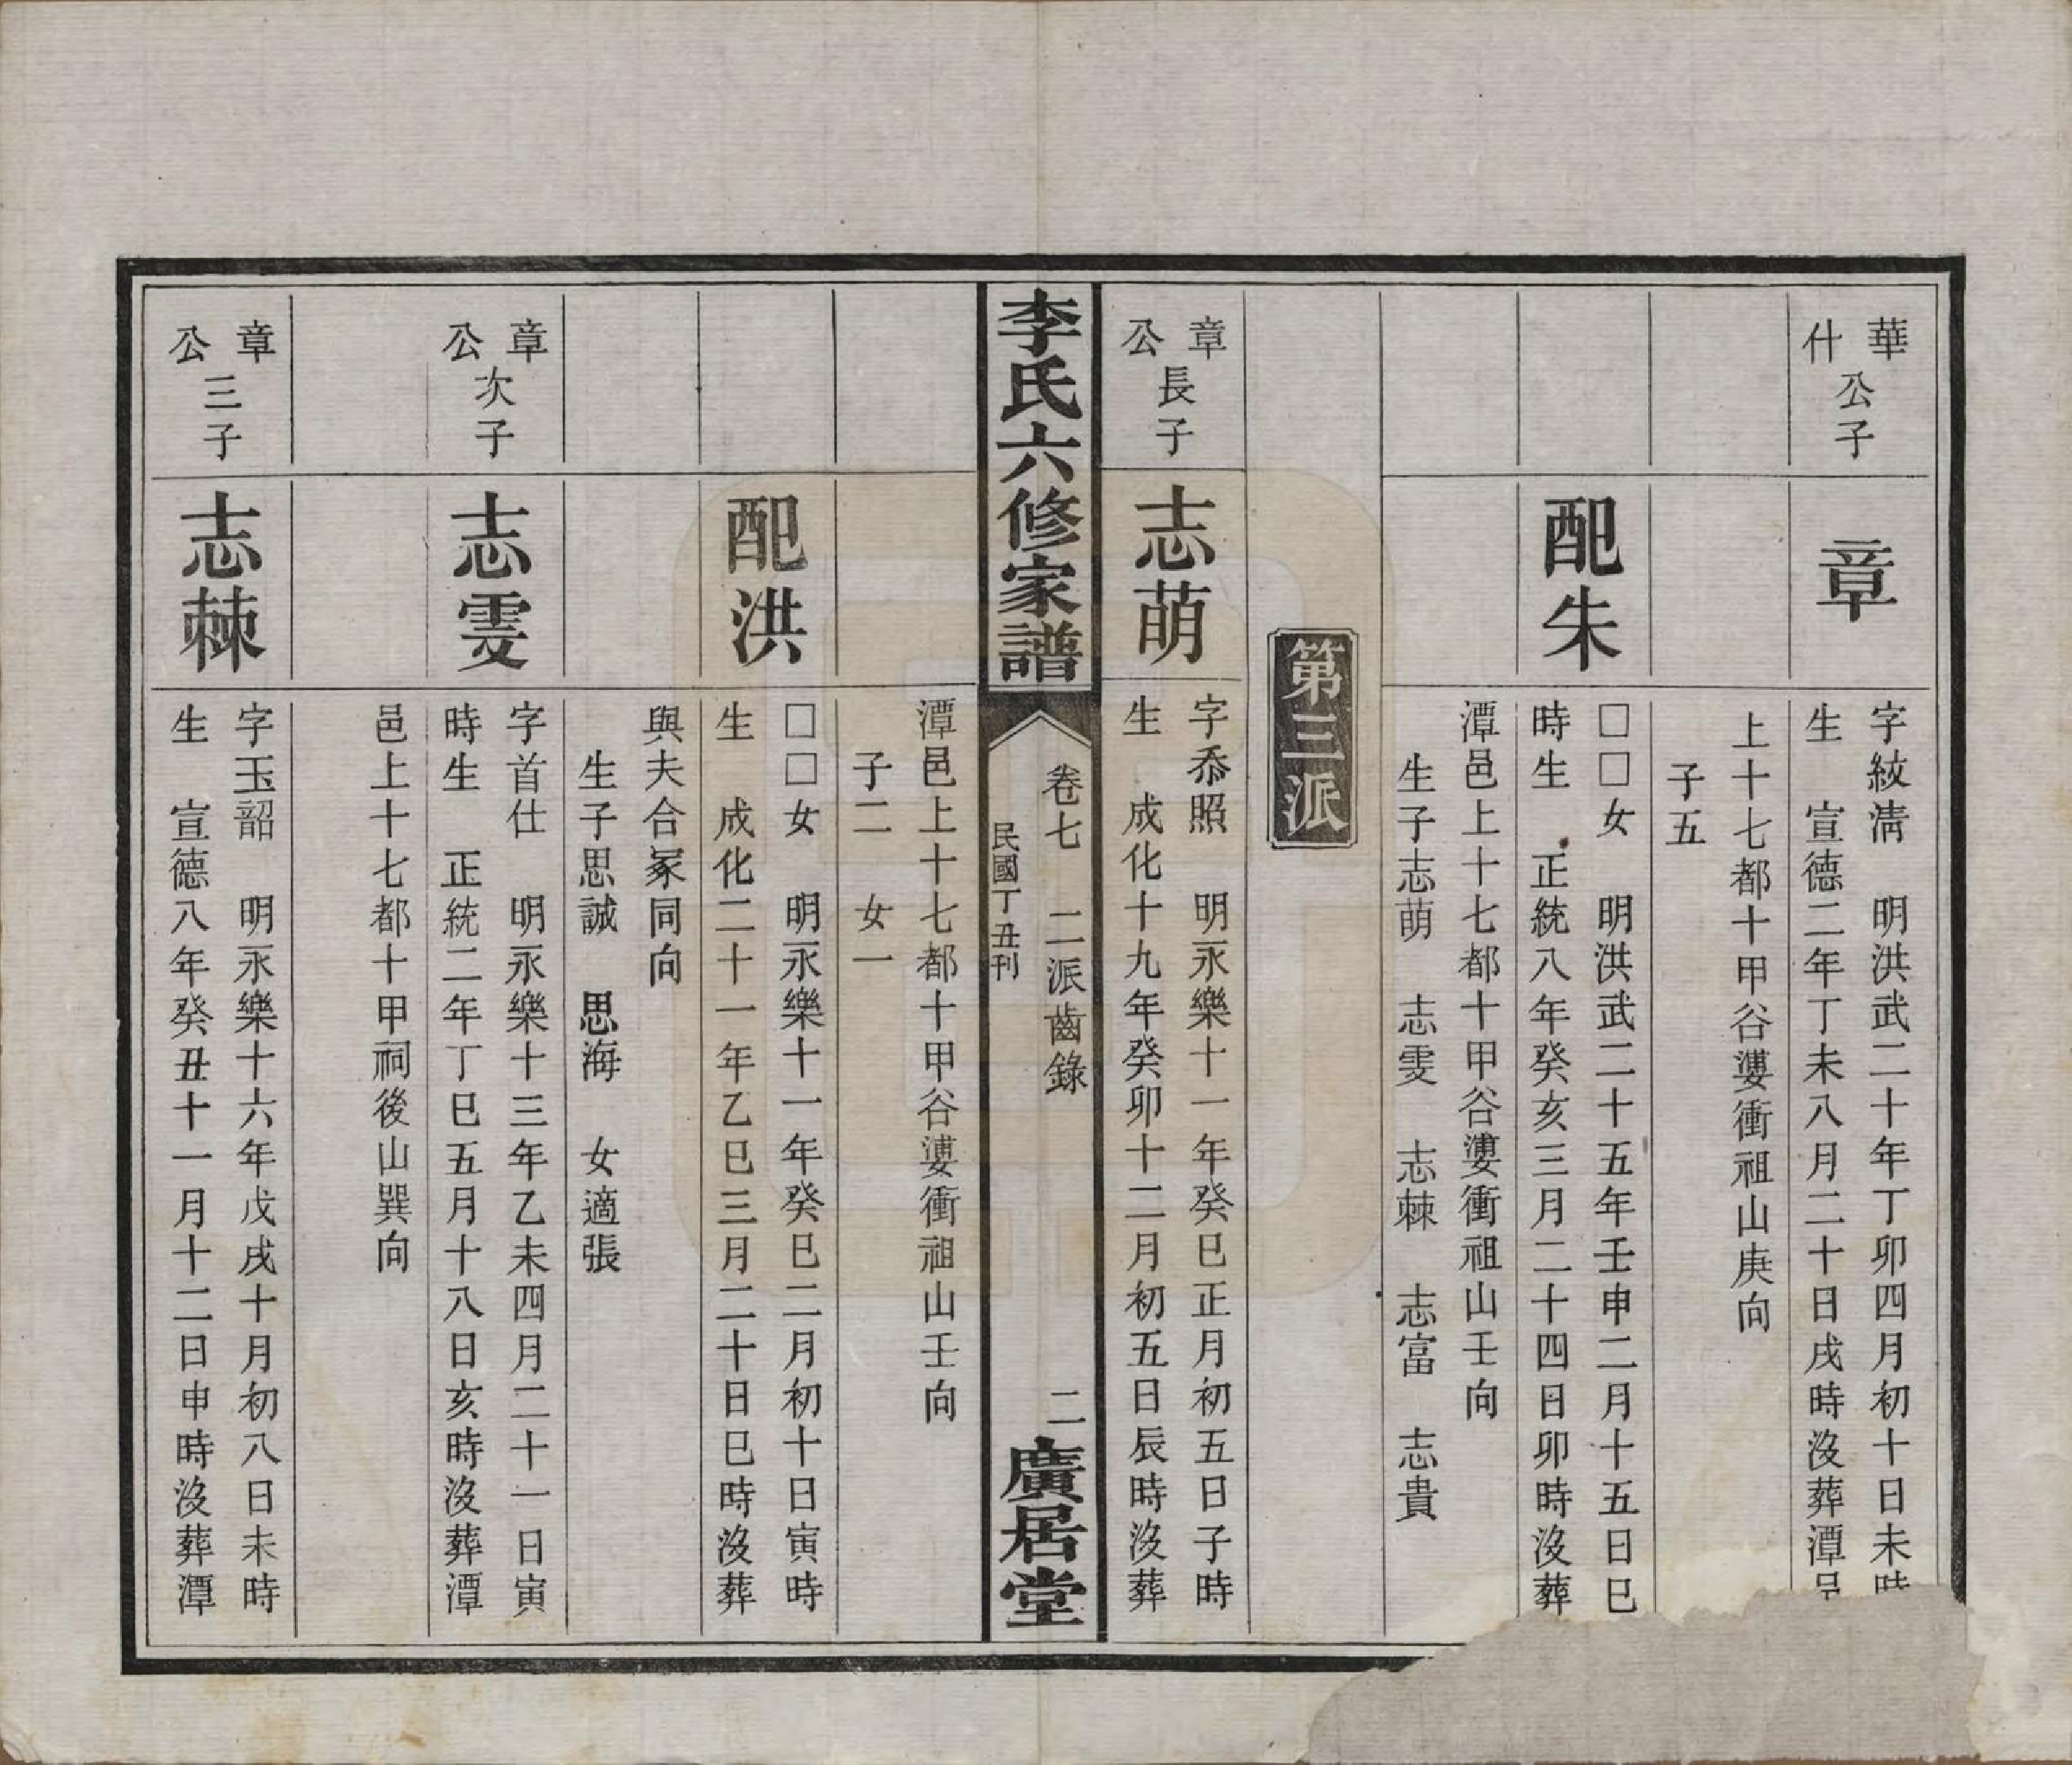 華什公子
章
字紋淸　明洪武二十年丁卯四月初十日未時
生　宣德二年丁未八月二十日戌時沒葬潭邑
上十七都十甲谷漊衝祖山庚向
子五
配朱
□□女　明洪武二十五年壬申二月十五日巳
時生　正統八年癸亥三月二十四日卯時沒葬
潭邑上十七都十甲谷漊衝祖山壬向
生子志萌　志雯　志棘　志富　志貴
第三派
章公長子
志萌
字忝照　明永樂十一年癸巳正月初五日子時
生　成化十九年癸卯十二月初五日辰時沒葬
李氏六修家譜
卷七　二派齒錄
民國丁丑刊
二
廣居堂
潭邑上十七都十甲谷漊衝祖山壬向
子二　女一
配洪
□□女　明永樂十一年癸巳二月初十日寅時
生　成化二十一年乙巳三月二十日巳時沒葬
與夫合冢同向
生子思誠　思海　女適張
章公次子
志雯
字首仕　明永樂十三年乙未四月二十一日寅
時生　正統二年丁巳五月十八日亥時沒葬潭
邑上十七都十甲祠後山巽向
章公三子
志棘
字玉韶　明永樂十六年戊戌十月初八日未時
生　宣德八年癸丑十一月十二日申時沒葬潭